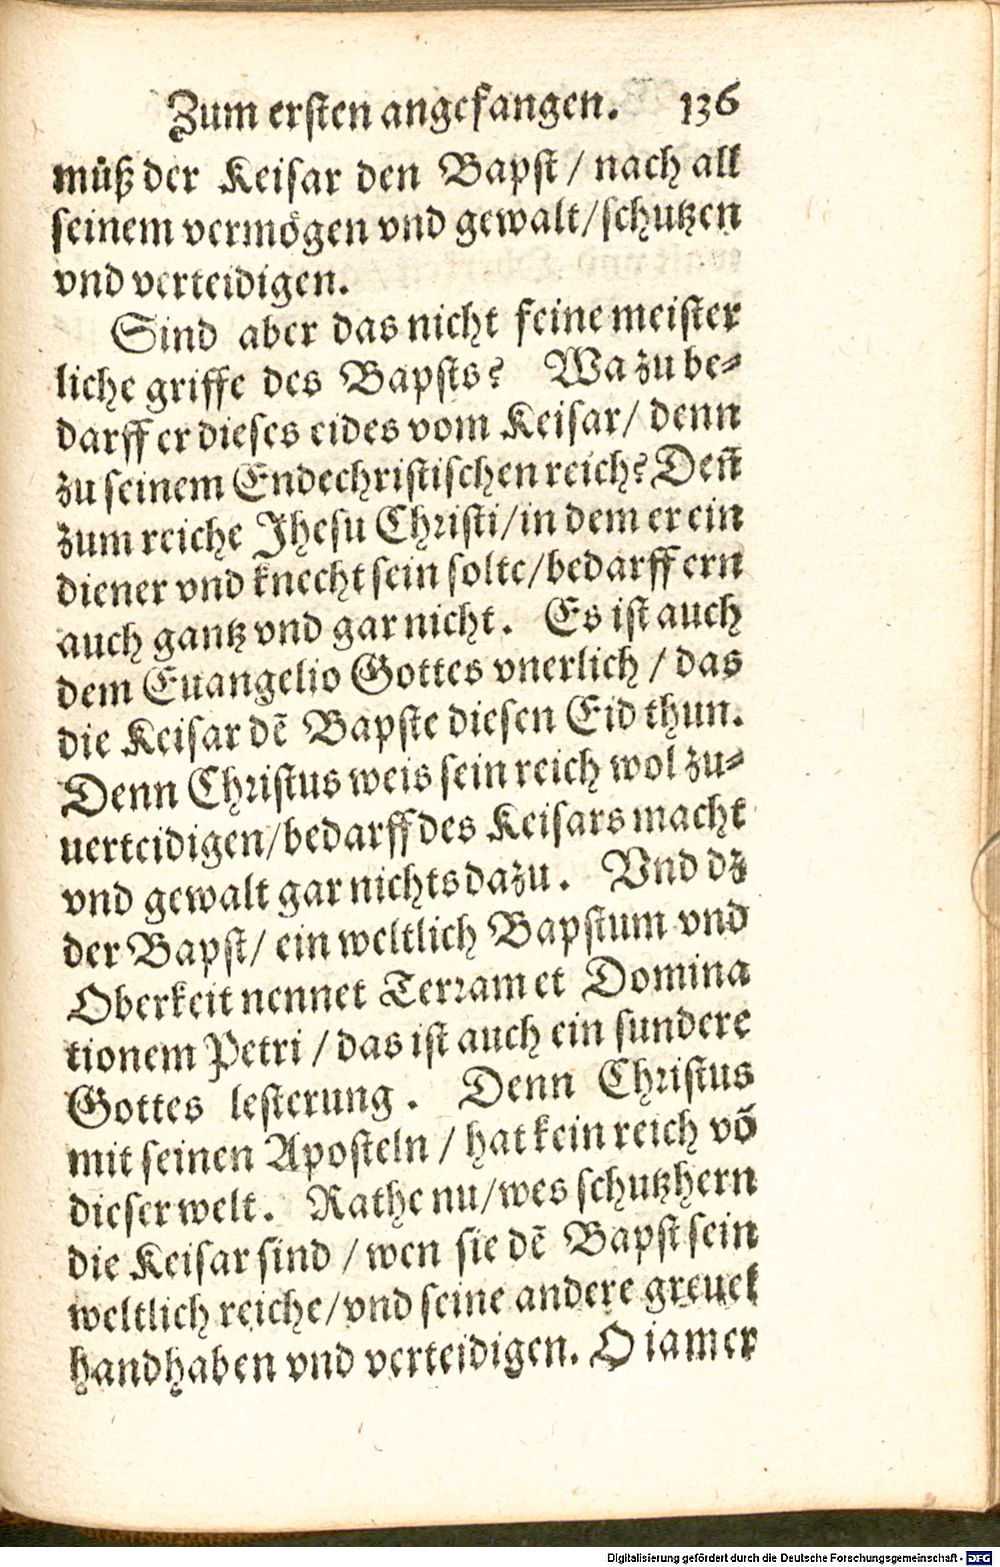 Zum ersten angefangen. 136
müß der Keisar den Bapst / nach all
seinem vermögen vnd gewalt / schutzen
vnd verteidigen.
Sind aber das nicht feine meister
liche griffe des Bapsts? Wa zu be-
darff er dieses eides vom Keisar / denn
zu seinem Endechristischen reich? Deñ
zum reiche Jhesu Christi / in dem er ein
diener vnd knecht sein solte / bedarff ern
auch gantz vnd gar nicht. Es ist auch
dem Euangelio Gottes vnerlich / das
die Keisar dē Bapste diesen Eid thun.
Denn Christus weis sein reich wol zu-
uerteidigen / bedarff des Keisars macht
vnd gewalt gar nichts dazu. Vnd dz
der Bapst / ein weltlich Bapstum vnd
Oberkeit nennet Terram et Domina
tionem Petri / das ist auch ein sundere
Gottes lesterung. Denn Christus
mit seinen Aposteln / hat kein reich võ
dieser welt. Rathe nu / wes schutzhern
die Keisar sind / wen sie dē Bapst sein
weltlich reiche / vnd seine andere greuel
handhaben vnd verteidigen. O iamer
Digitalisierung gefördert durch die Deutsche Forschungsgemeinschaft - DFG